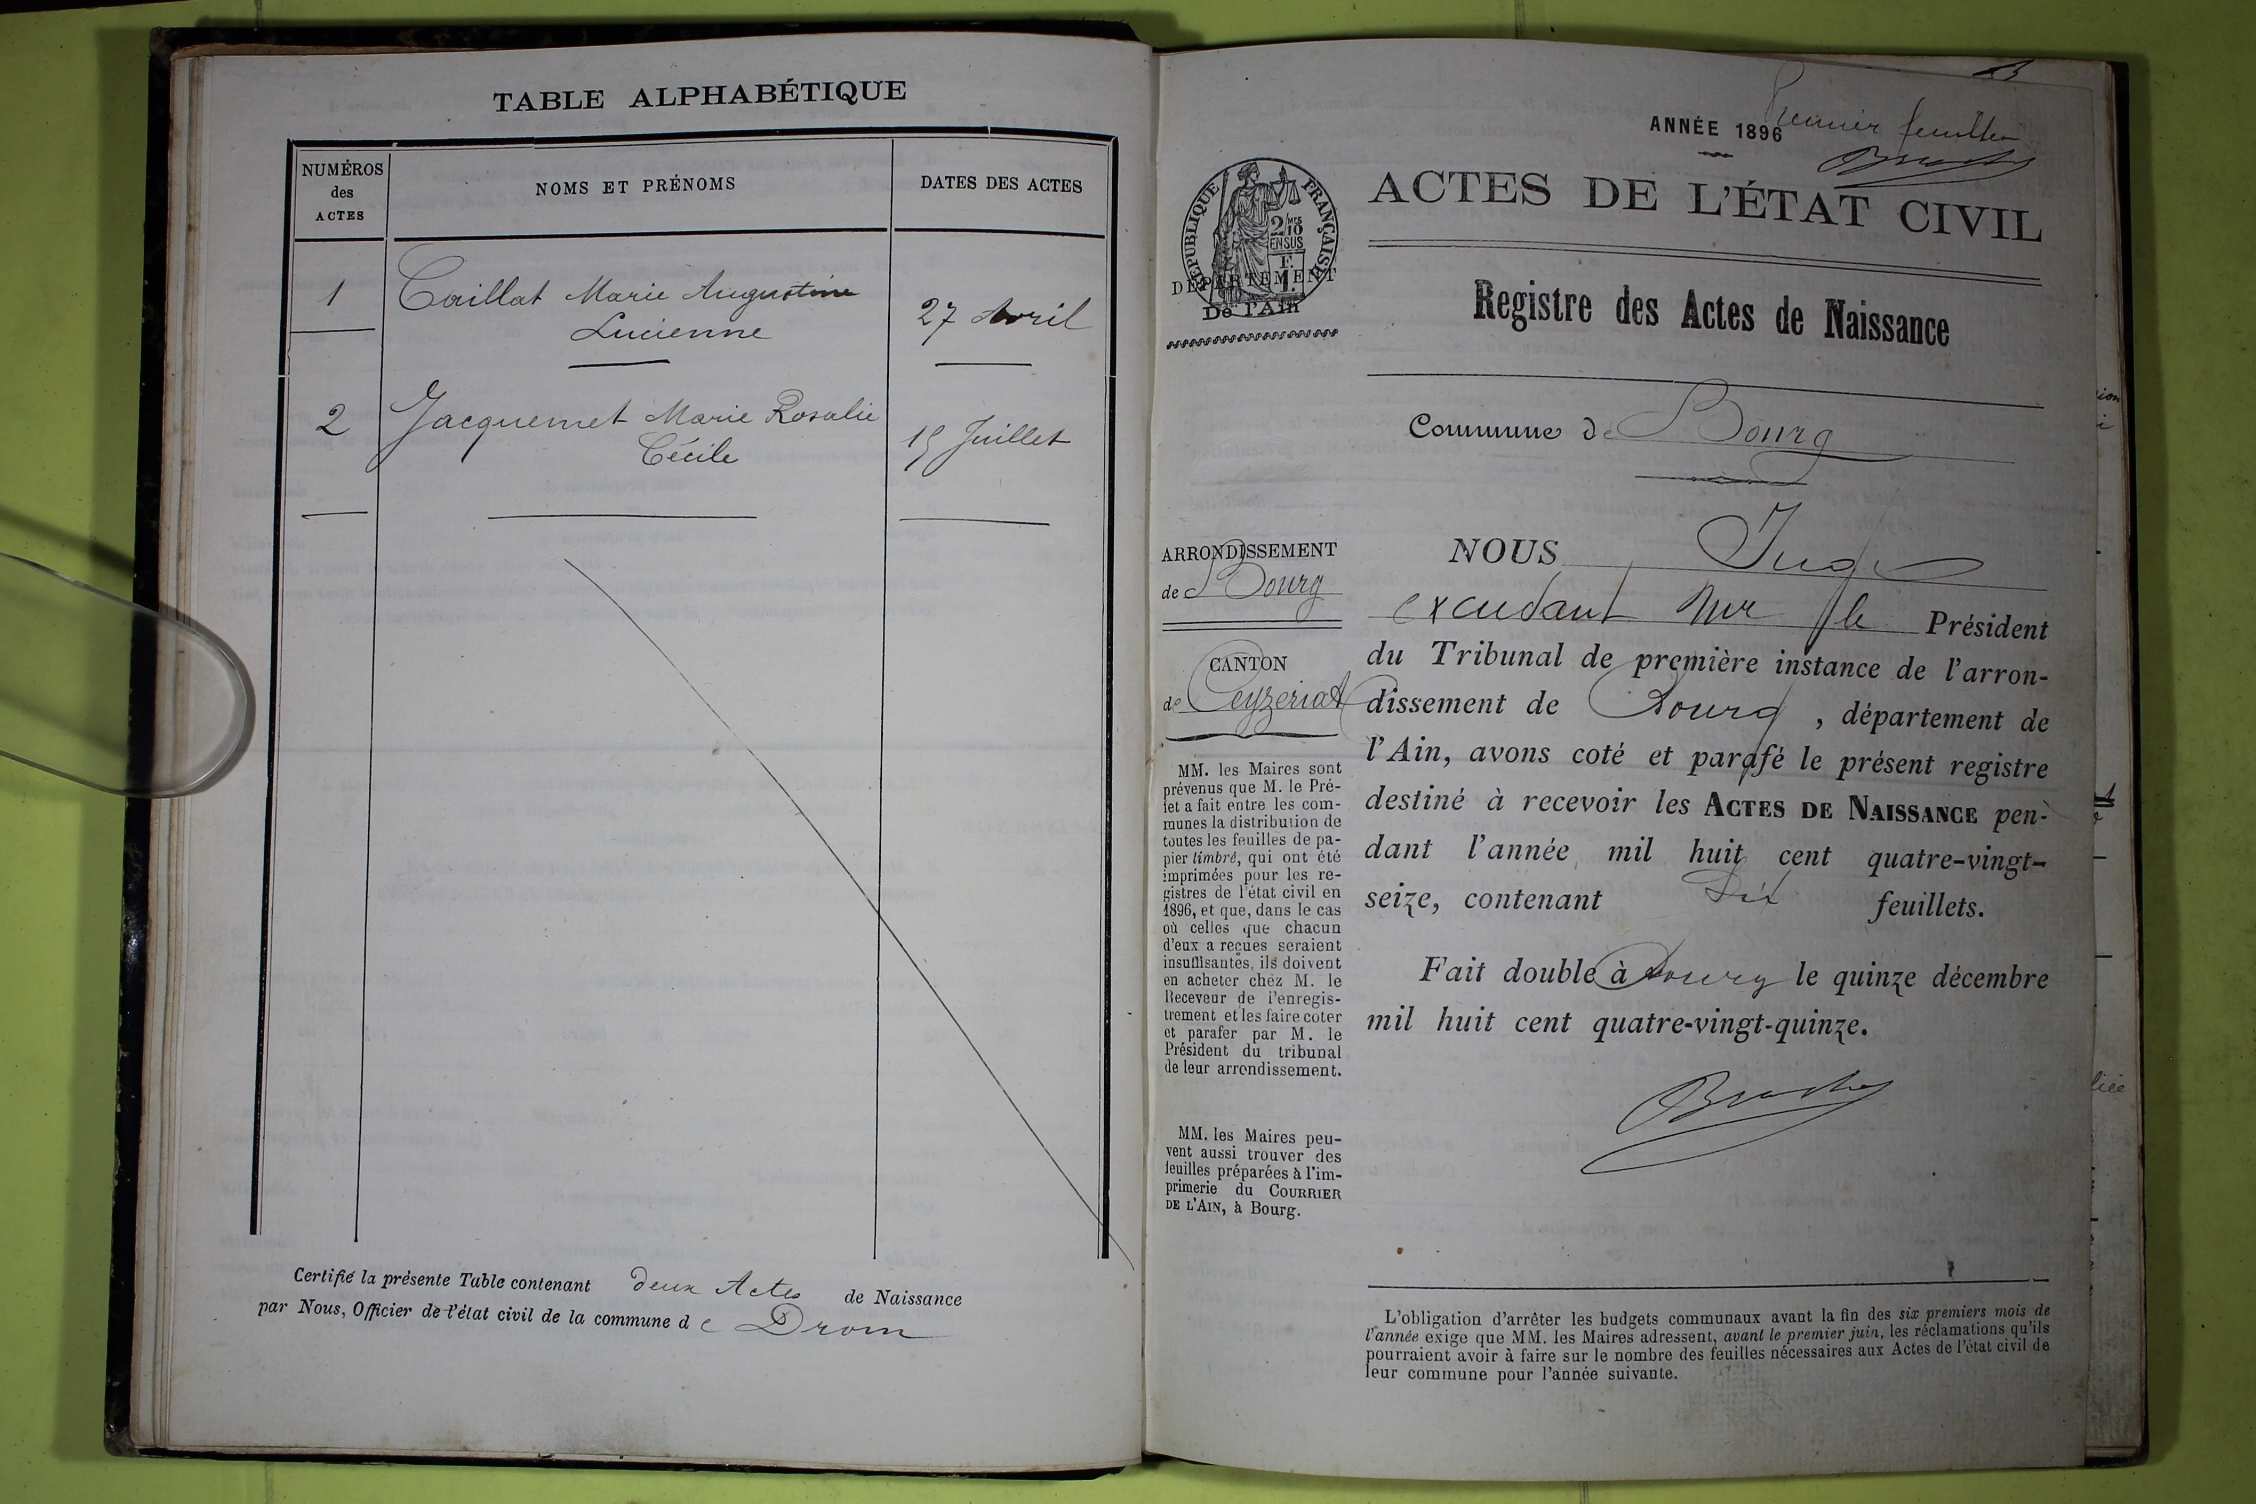 TABLE ALPHABÉTIQUE
NUMÉROS
des
ACTES
NOMS ET PRÉNOMS
DATES DES ACTES
1
Caillat Marie Augustine
Lucienne
27 Avril
2
Jacquemet Marie Rosalie
Cécile
15 Juillet
Certifié la présente Table contenant deux Actes de Naissance
par Nous, Officier de l'état civil de la commune de Drom
Premier feuillet
ANNÉE 1896
ACTES DE L'ÉTAT CIVIL
RÉPUBLIQUE FRANÇAISE
2/10 MES
EN SUS
F.
1.
DÉPARTEMENT
De l'Ain
Registre des Actes de Naissance
Commune de Bourg
ARRONDISSEMENT
de Bourg
CANTON
de Ceyzeriat
MM. les Maires sont
prévenus que M. le Pré-
fet a fait entre les com-
munes la distribution de
toutes les feuilles de pa-
pier timbré, qui ont été
imprimées pour les re-
gistres de l'état civil en
1896, et que, dans le cas
où celles que chacun
d'eux a reçues seraient
insuffisantes, ils doivent
en acheter chez M. le
Receveur de l'enregis-
trement et les faire coter
et parafer par M. le
Président du tribunal
de leur arrondissement.
MM. les Maires peu-
vent aussi trouver des
feuilles préparées à l'im-
primerie du COURRIER
DE L'AIN, à Bourg.
NOUS Juge
Mr le Président
du Tribunal de première instance de l'arron-
dissement de Bourg, département de
l'Ain, avons coté et parafé le présent registre
destiné à recevoir les ACTES DE NAISSANCE pen-
dant l'année mil huit cent quatre-vingt-
seize, contenant Dix feuillets.
Fait double à Bourg le quinze décembre
mil huit cent quatre-vingt-quinze.
L'obligation d'arrêter les budgets communaux avant la fin des six premiers mois de
l'année exige que MM. les Maires adressent, avant le premier juin, les réclamations qu'ils
pourraient avoir à faire sur le nombre des feuilles nécessaires aux Actes de l'état civil de
leur commune pour l'année suivante.